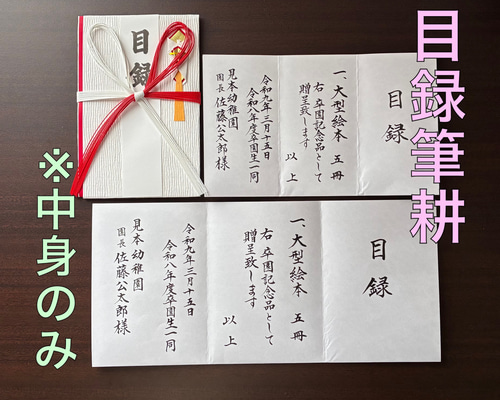 目録筆耕
※中身のみ
目録
目録
一、大型絵本 五冊
右 卒園記念品として
贈呈致します
以上
令和九年三月十五日
令和八年度卒園生一同
見本幼稚園
園長 佐藤公太郎様
目録
一、大型絵本 五冊
右 卒園記念品として
贈呈致します
以上
令和九年三月十五日
令和八年度卒園生一同
見本幼稚園
園長 佐藤公太郎様